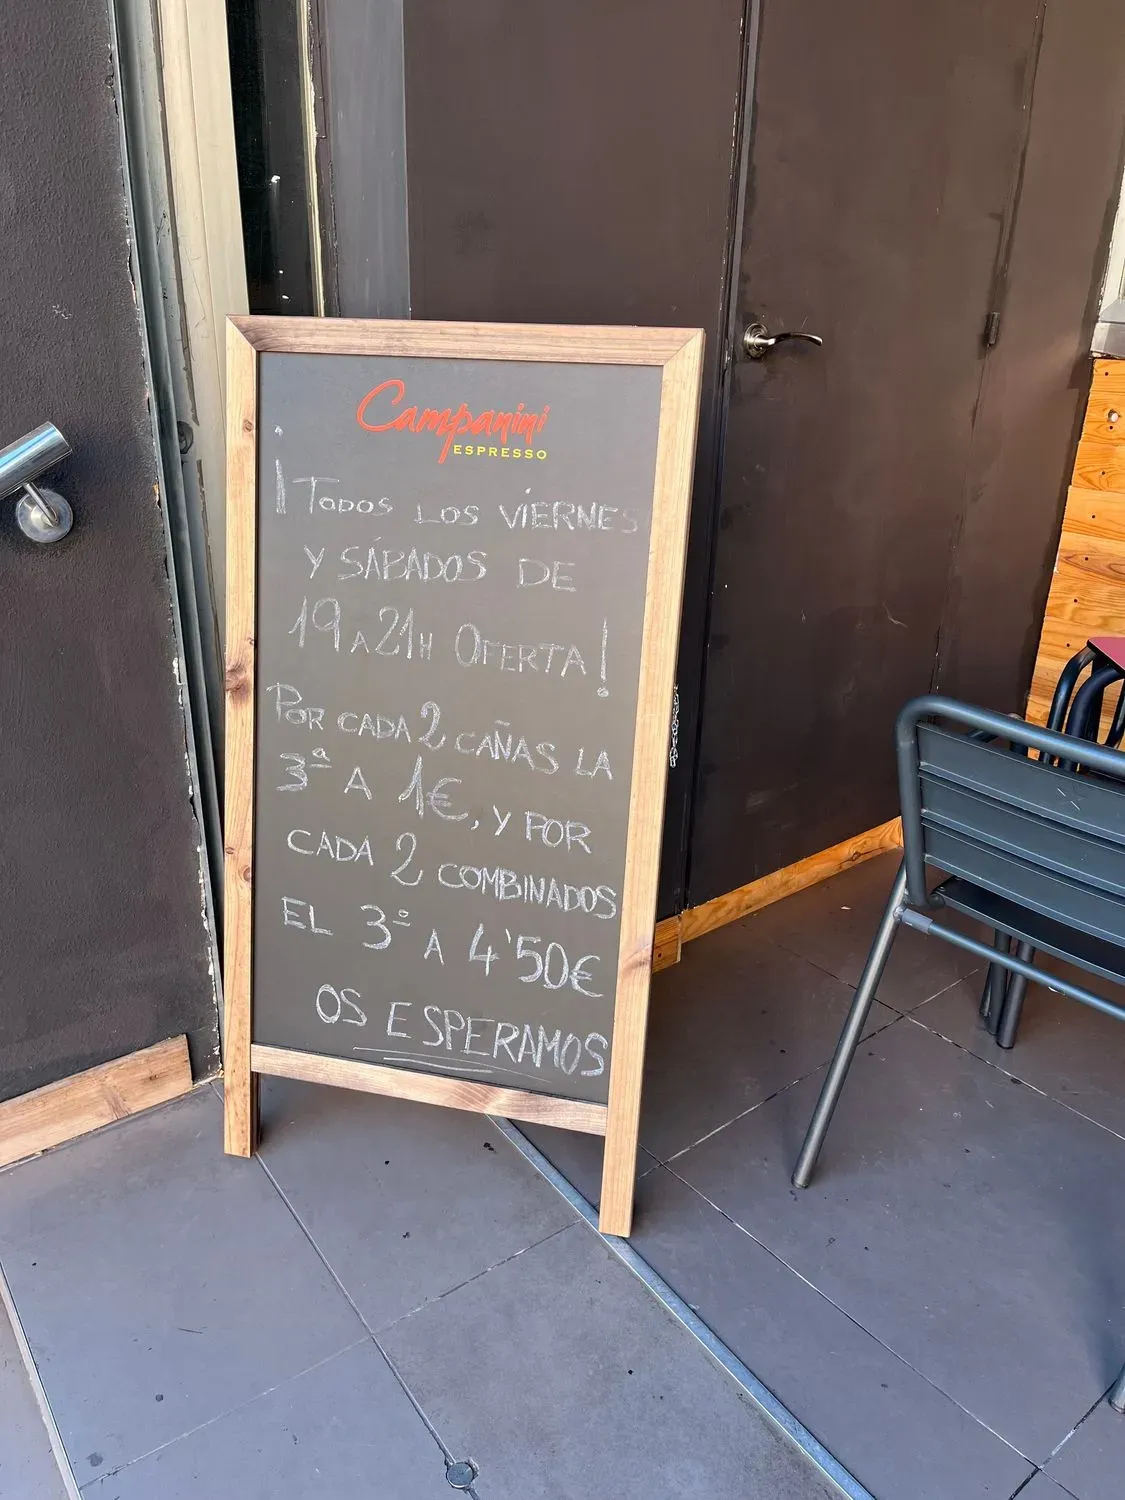 Campanini
ESPRESSO
¡TODOS LOS VIERNES
Y SÁBADOS DE
19 A 21H OFERTA!
POR CADA 2 CAÑAS LA
3ª A 1€, Y POR
CADA 2 COMBINADOS
EL 3º A 4'50€
OS ESPERAMOS